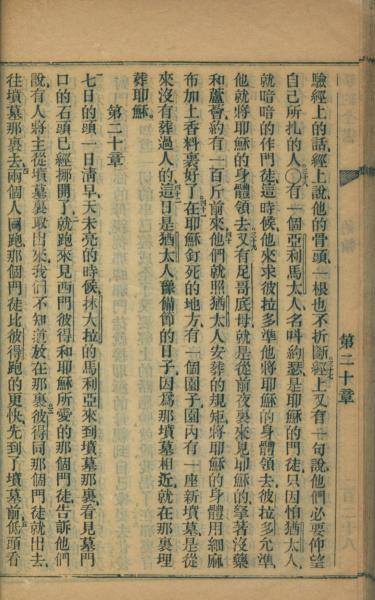 驗經上的話、經上說、他的骨頭、一根也不折斷、經上又有一句說、他們必要仰望
自己所扎的人、〇有一個亞利馬太人、名叫約瑟、是耶穌的門徒、只因怕猶太人、
就暗暗的作門徒、這時候、他來求彼拉多、準他將耶穌的身體領去、彼拉多允準、
他就將耶穌的身體領去、又有尼哥底母、就是從前夜裏來見耶穌的、拏著沒藥
和蘆薈、約有一百斤前來、他們就照猶太人安葬的規矩、將耶穌的身體用細麻
布加上香料裹好了、在耶穌釘死的地方、有一個園子、園內有一座新墳墓、是從
來沒有葬過人的、這日是猶太人豫備節的日子、因爲那墳墓相近、就在那裏埋
葬耶穌、
第二十章
七日的頭一日清早、天未亮的時候、抹大拉的馬利亞來到墳墓那裏、看見墓門
口的石頭已經挪開了、就跑來見西門彼得、和耶穌所愛的那個門徒、告訴他們
說、有人將主從墳墓裏取出來、我們不知道放在那裏、彼得同那個門徒就出去、
往墳墓那裏去、兩個人同跑、那個門徒比彼得跑的更快、先到了墳墓前、低頭看
第二十章